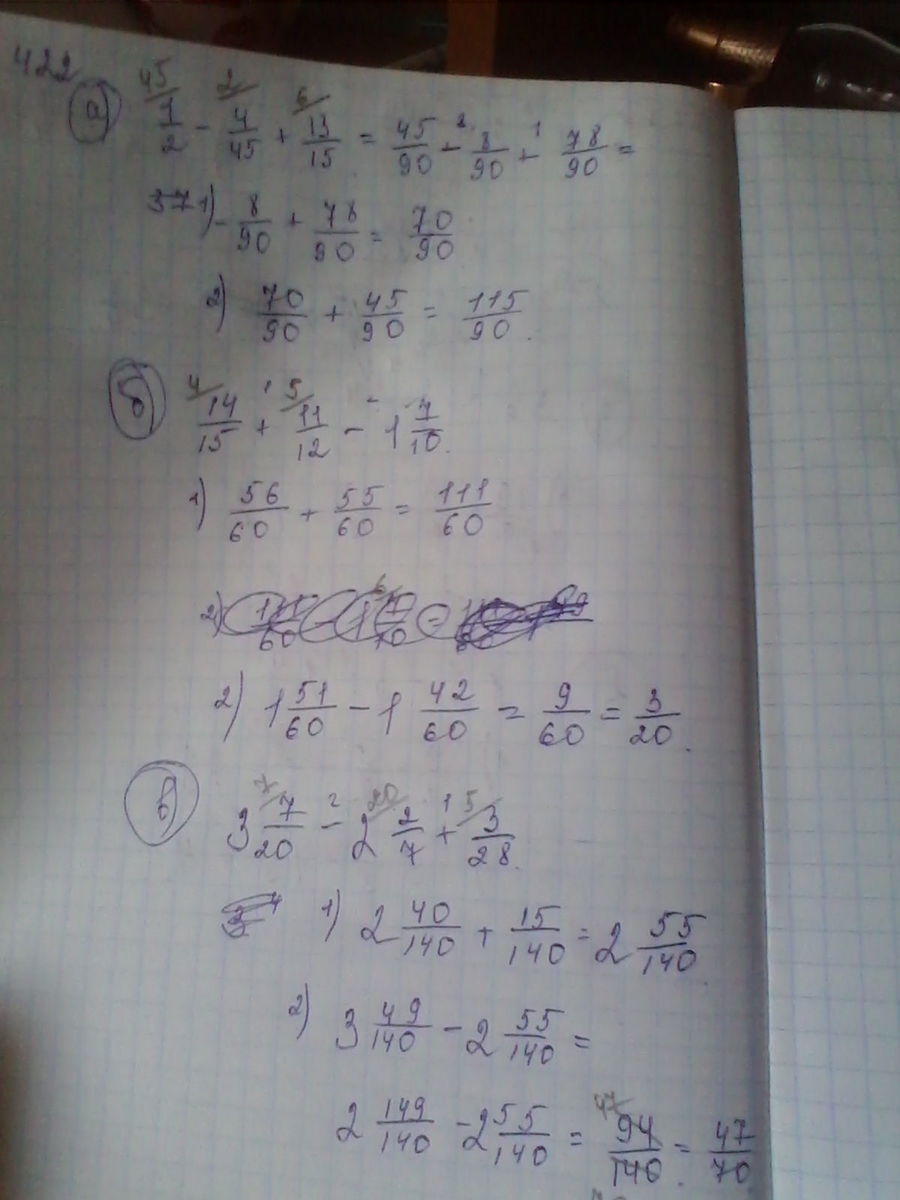 422
а) 45/ 1/2 - 2/ 4/45 + 6/ 13/15 = 45/90 - 8/90 + 78/90 =
37 1) - 8/90 + 78/90 = 70/90
2) 70/90 + 45/90 = 115/90.
б) 4/ 14/15 + 5/ 11/12 - 1 7/10.
1) 56/60 + 55/60 = 111/60
2) 1 51/60 - 1 42/60 = 9/60 = 3/20.
в) 3 7/ 7/20 - 2 20/ 2/7 + 5/ 3/28.
1) 2 40/140 + 15/140 = 2 55/140
2) 3 49/140 - 2 55/140 =
2 149/140 - 2 55/140 = 47 94/140 = 47/70